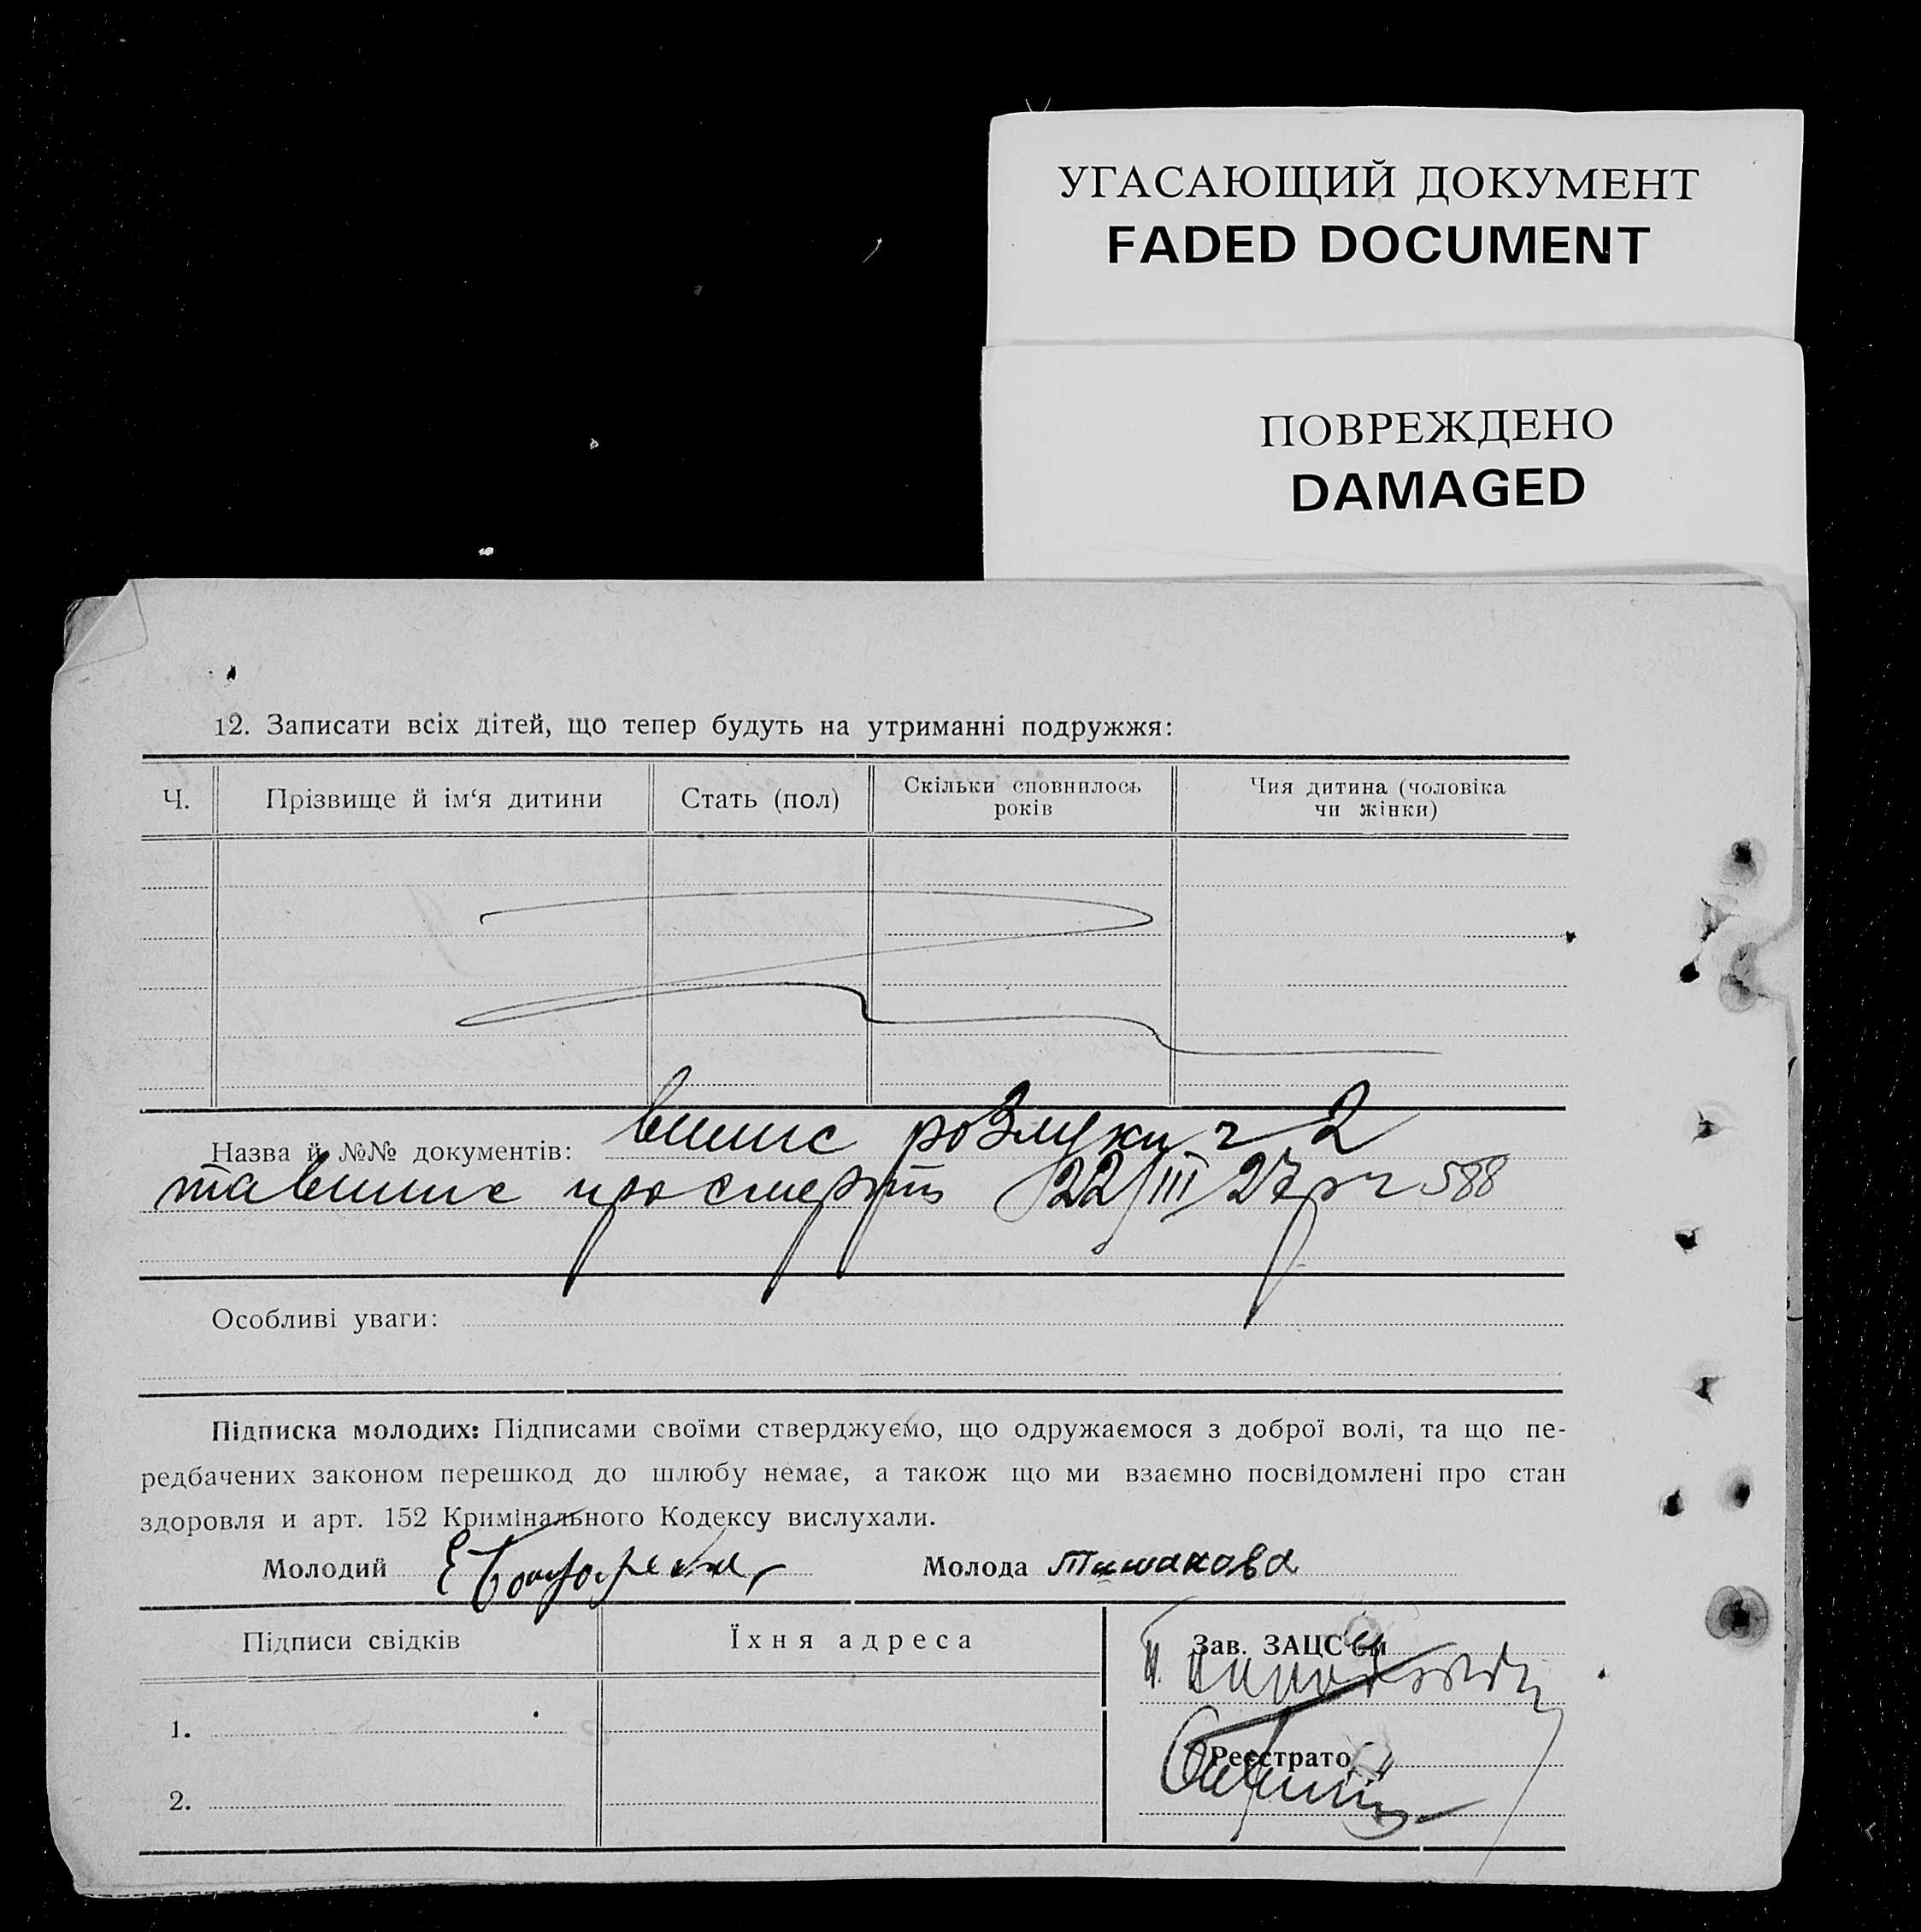 УГАСАЮЩИЙ ДОКУМЕНТ
FADED DOCUMENT
ПОВРЕЖДЕНО
DAMAGED
12. Записати всіх дітей, що тепер будуть на утриманні подружжя:
Ч.
Прізвище й ім‘я дитини
Стать (пол)
Скільки сповнилось
років
Чия дитина (чоловіка
чи жінки)
Назва й №№ документів: випис розлуки ч 2
та випис про смерть 22/III 27 р ч 588
Особливі уваги:
Підписка молодих: Підписами своїми стверджуємо, що одружаємося з доброї волі, та що пе-
редбачених законом перешкод до шлюбу немає, а також що ми взаємно посвідомлені про стан
здоровля и арт. 152 Кримінального Кодексу вислухали.
Молодий
Молода Тишакова
Підписи свідків
Їхня адреса
Зав. ЗАЦС'ом
1.
Реєстратор
2.